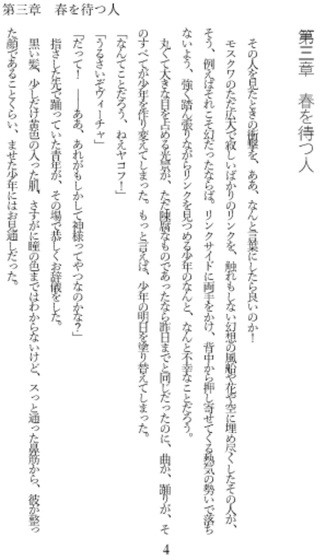 第三章　春を待つ人
第三章　春を待つ人
その人を見たときの衝撃を、ああ、なんと言葉にしたら良いのか！
モスクワのただ広大で寂しいばかりのリンクを、触れもしない幻想の風船や花や空に埋め尽くしたその人が、
そう、例えばそれこそ幻だったならば。リンクサイドに両手をかけ、背中から押し寄せてくる熱気の勢いで落ち
ないよう、強く踏ん張りながらリンクを見つめる少年のなんと、なんと不幸なことだろう。
丸くて大きな目を占める光景が、ただ陳腐なものであったなら昨日までと同じだったのに、曲が、踊りが、そ
のすべてが少年を作り変えてしまった。もっと言えば、少年の明日を塗り替えてしまった。
「なんてことだろう、ねえヤコフ！」
「うるさいぞヴィーチャ」
「だって！　――ああ、あれがもしかして神様ってやつなのかな？」
指さした先で踊っていた青年が、その場で恭しくお辞儀をした。
黒い髪、少しだけ黄色の入った肌、さすがに瞳の色まではわからないけど、スっと通った鼻筋から、彼が整っ
た顔であることくらい、ませた少年にはお見通しだった。
4